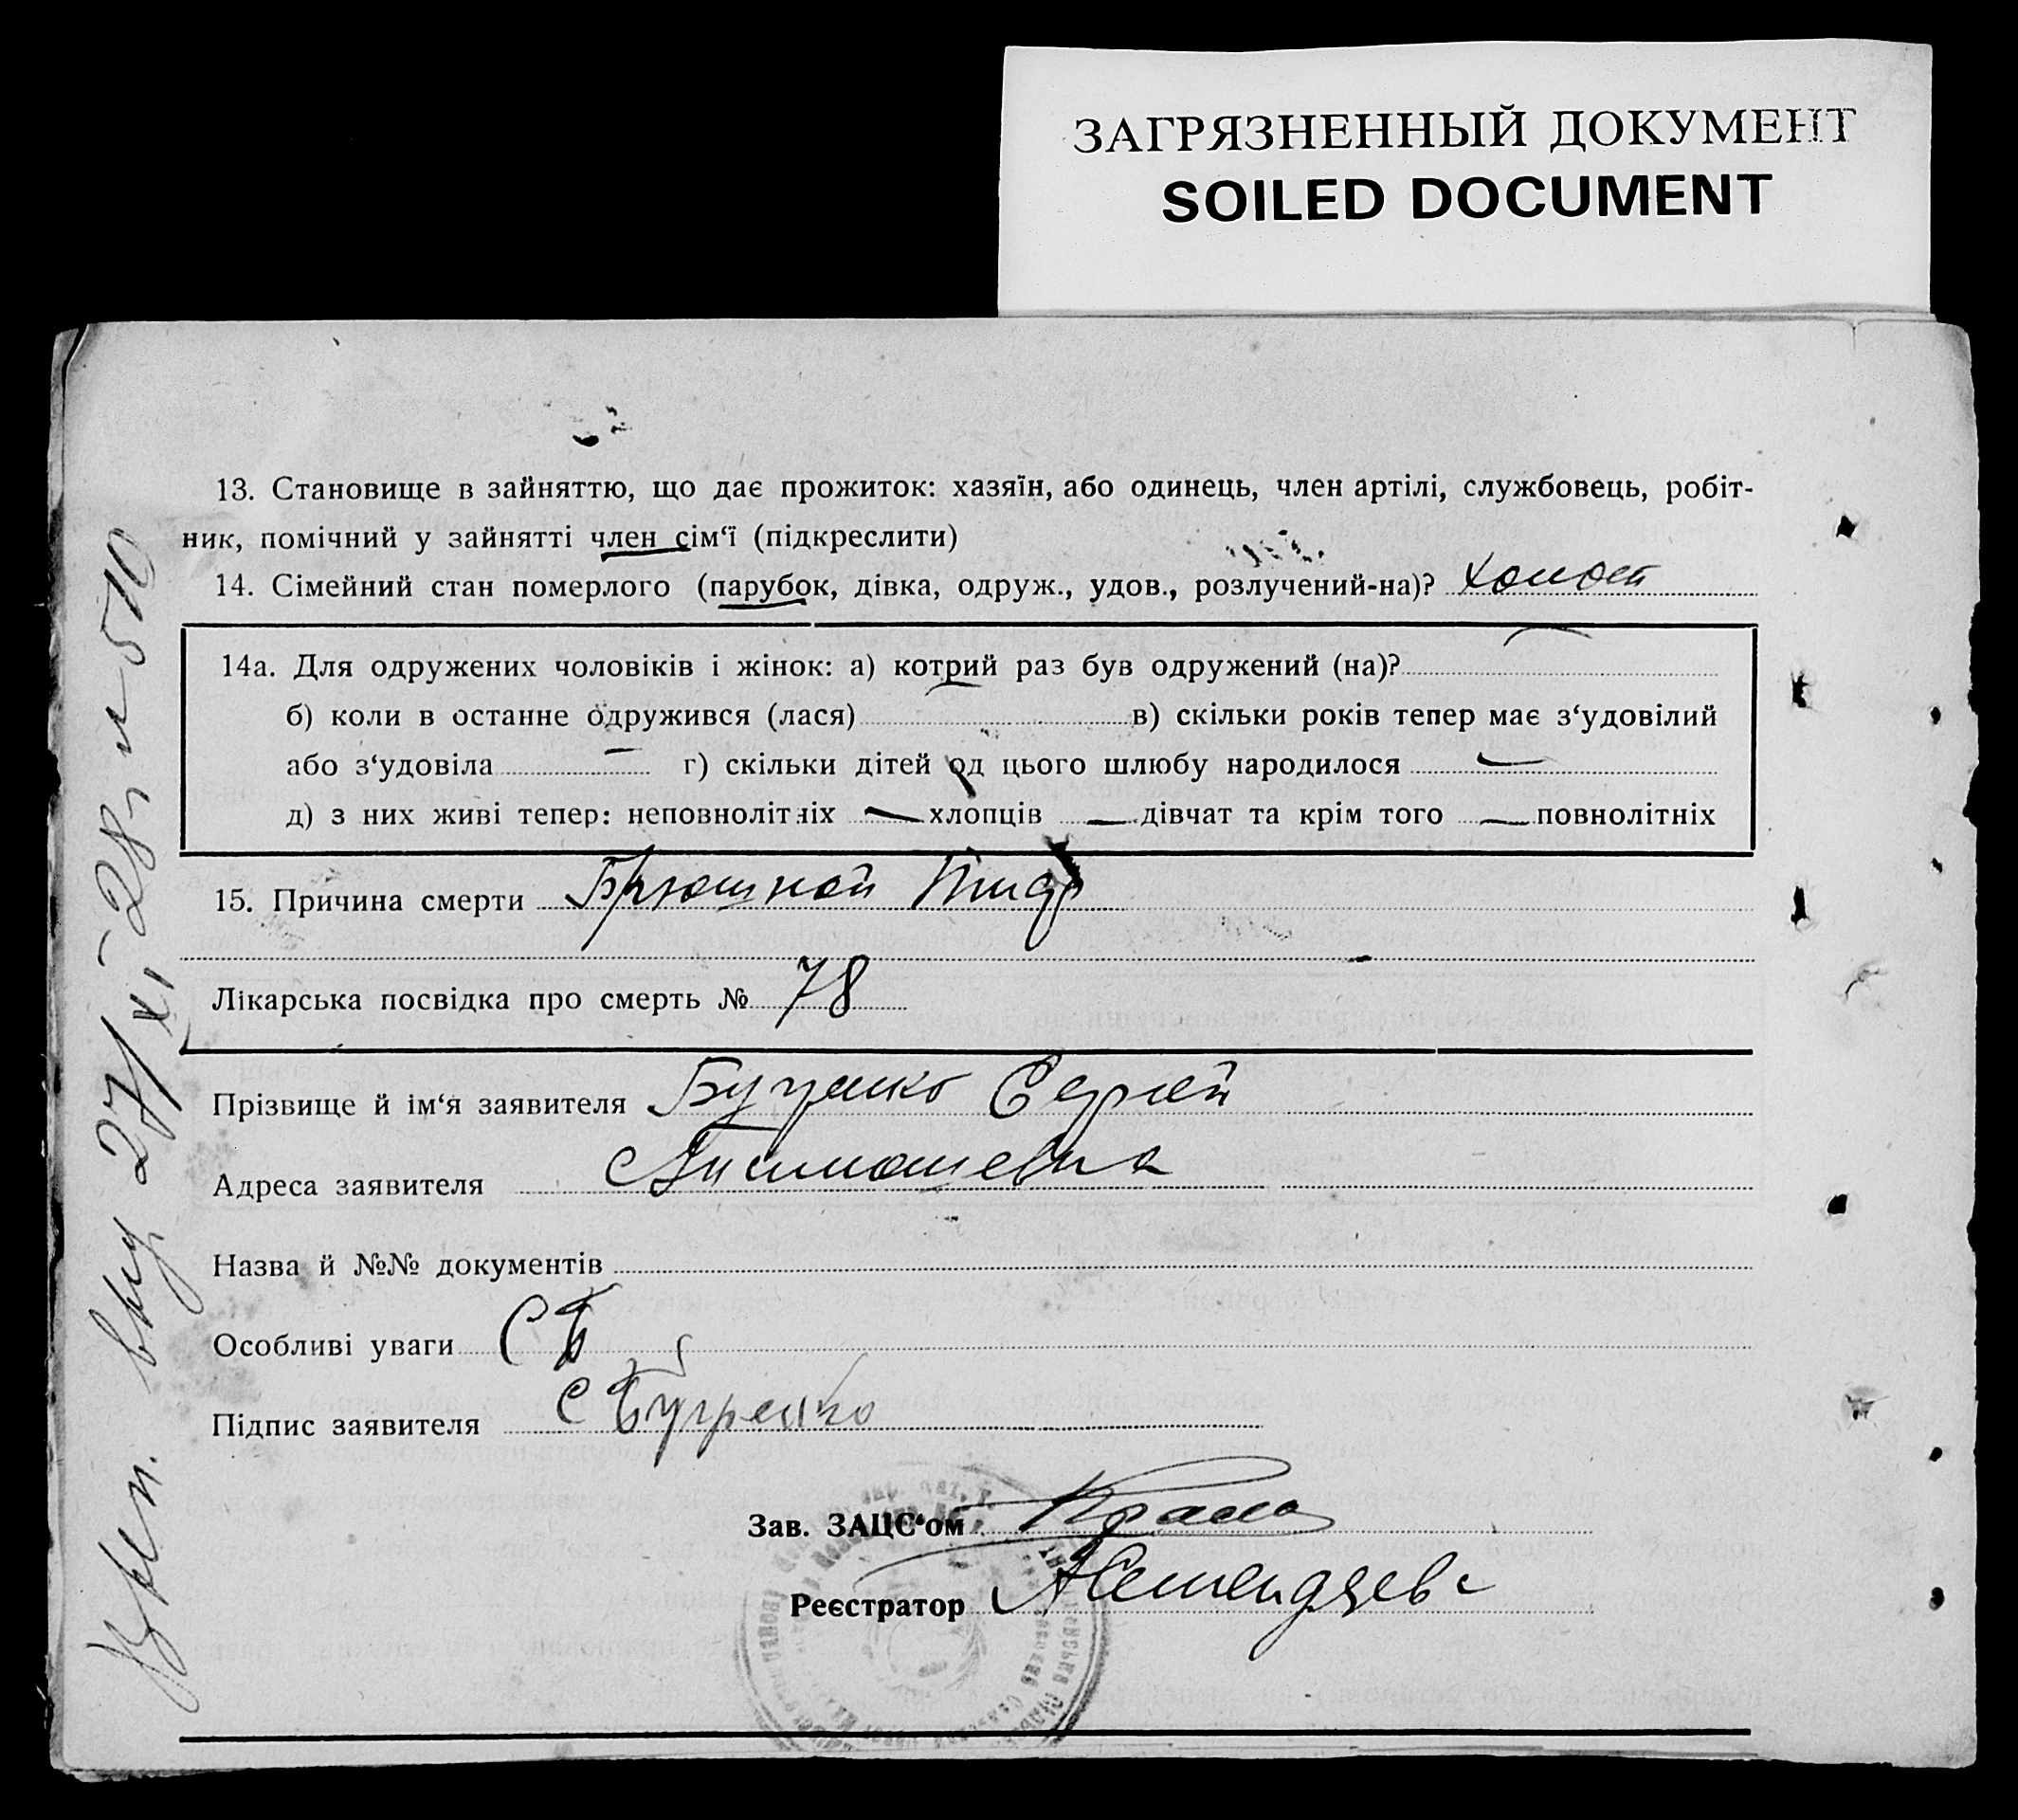 ЗАГРЯЗНЕННЫЙ ДОКУМЕНТ
SOILED DOCUMENT
13. Становище в зайняттю, що дає прожиток: хазяїн, або одинець, член артілі, службовець, робіт-
ник, помічний у зайнятті член сім‘ї (підкреслити)
14. Сімейний стан померлого (парубок, дівка, одруж., удов., розлучений-на)? холост
14а. Для одружених чоловіків і жінок: а) котрий раз був одружений (на)?
б) коли в останне одружився (лася) в) скільки років тепер має з‘удовілий
або з‘удовіла — г) скільки дітей од цього шлюбу народилося —
д) з них живі тепер: неповнолітніх — хлопців — дівчат та крім того — повнолітніх
15. Причина смерти Брюшной Тиф
Лікарська посвідка про смерть № 78
Прізвище й ім‘я заявителя Сергей
Адреса заявителя
Назва й №№ документів
Особливі уваги СБ
Підпис заявителя С
Зав. ЗАЦС‘ом
Реєстратор
27/XI–28, № 510